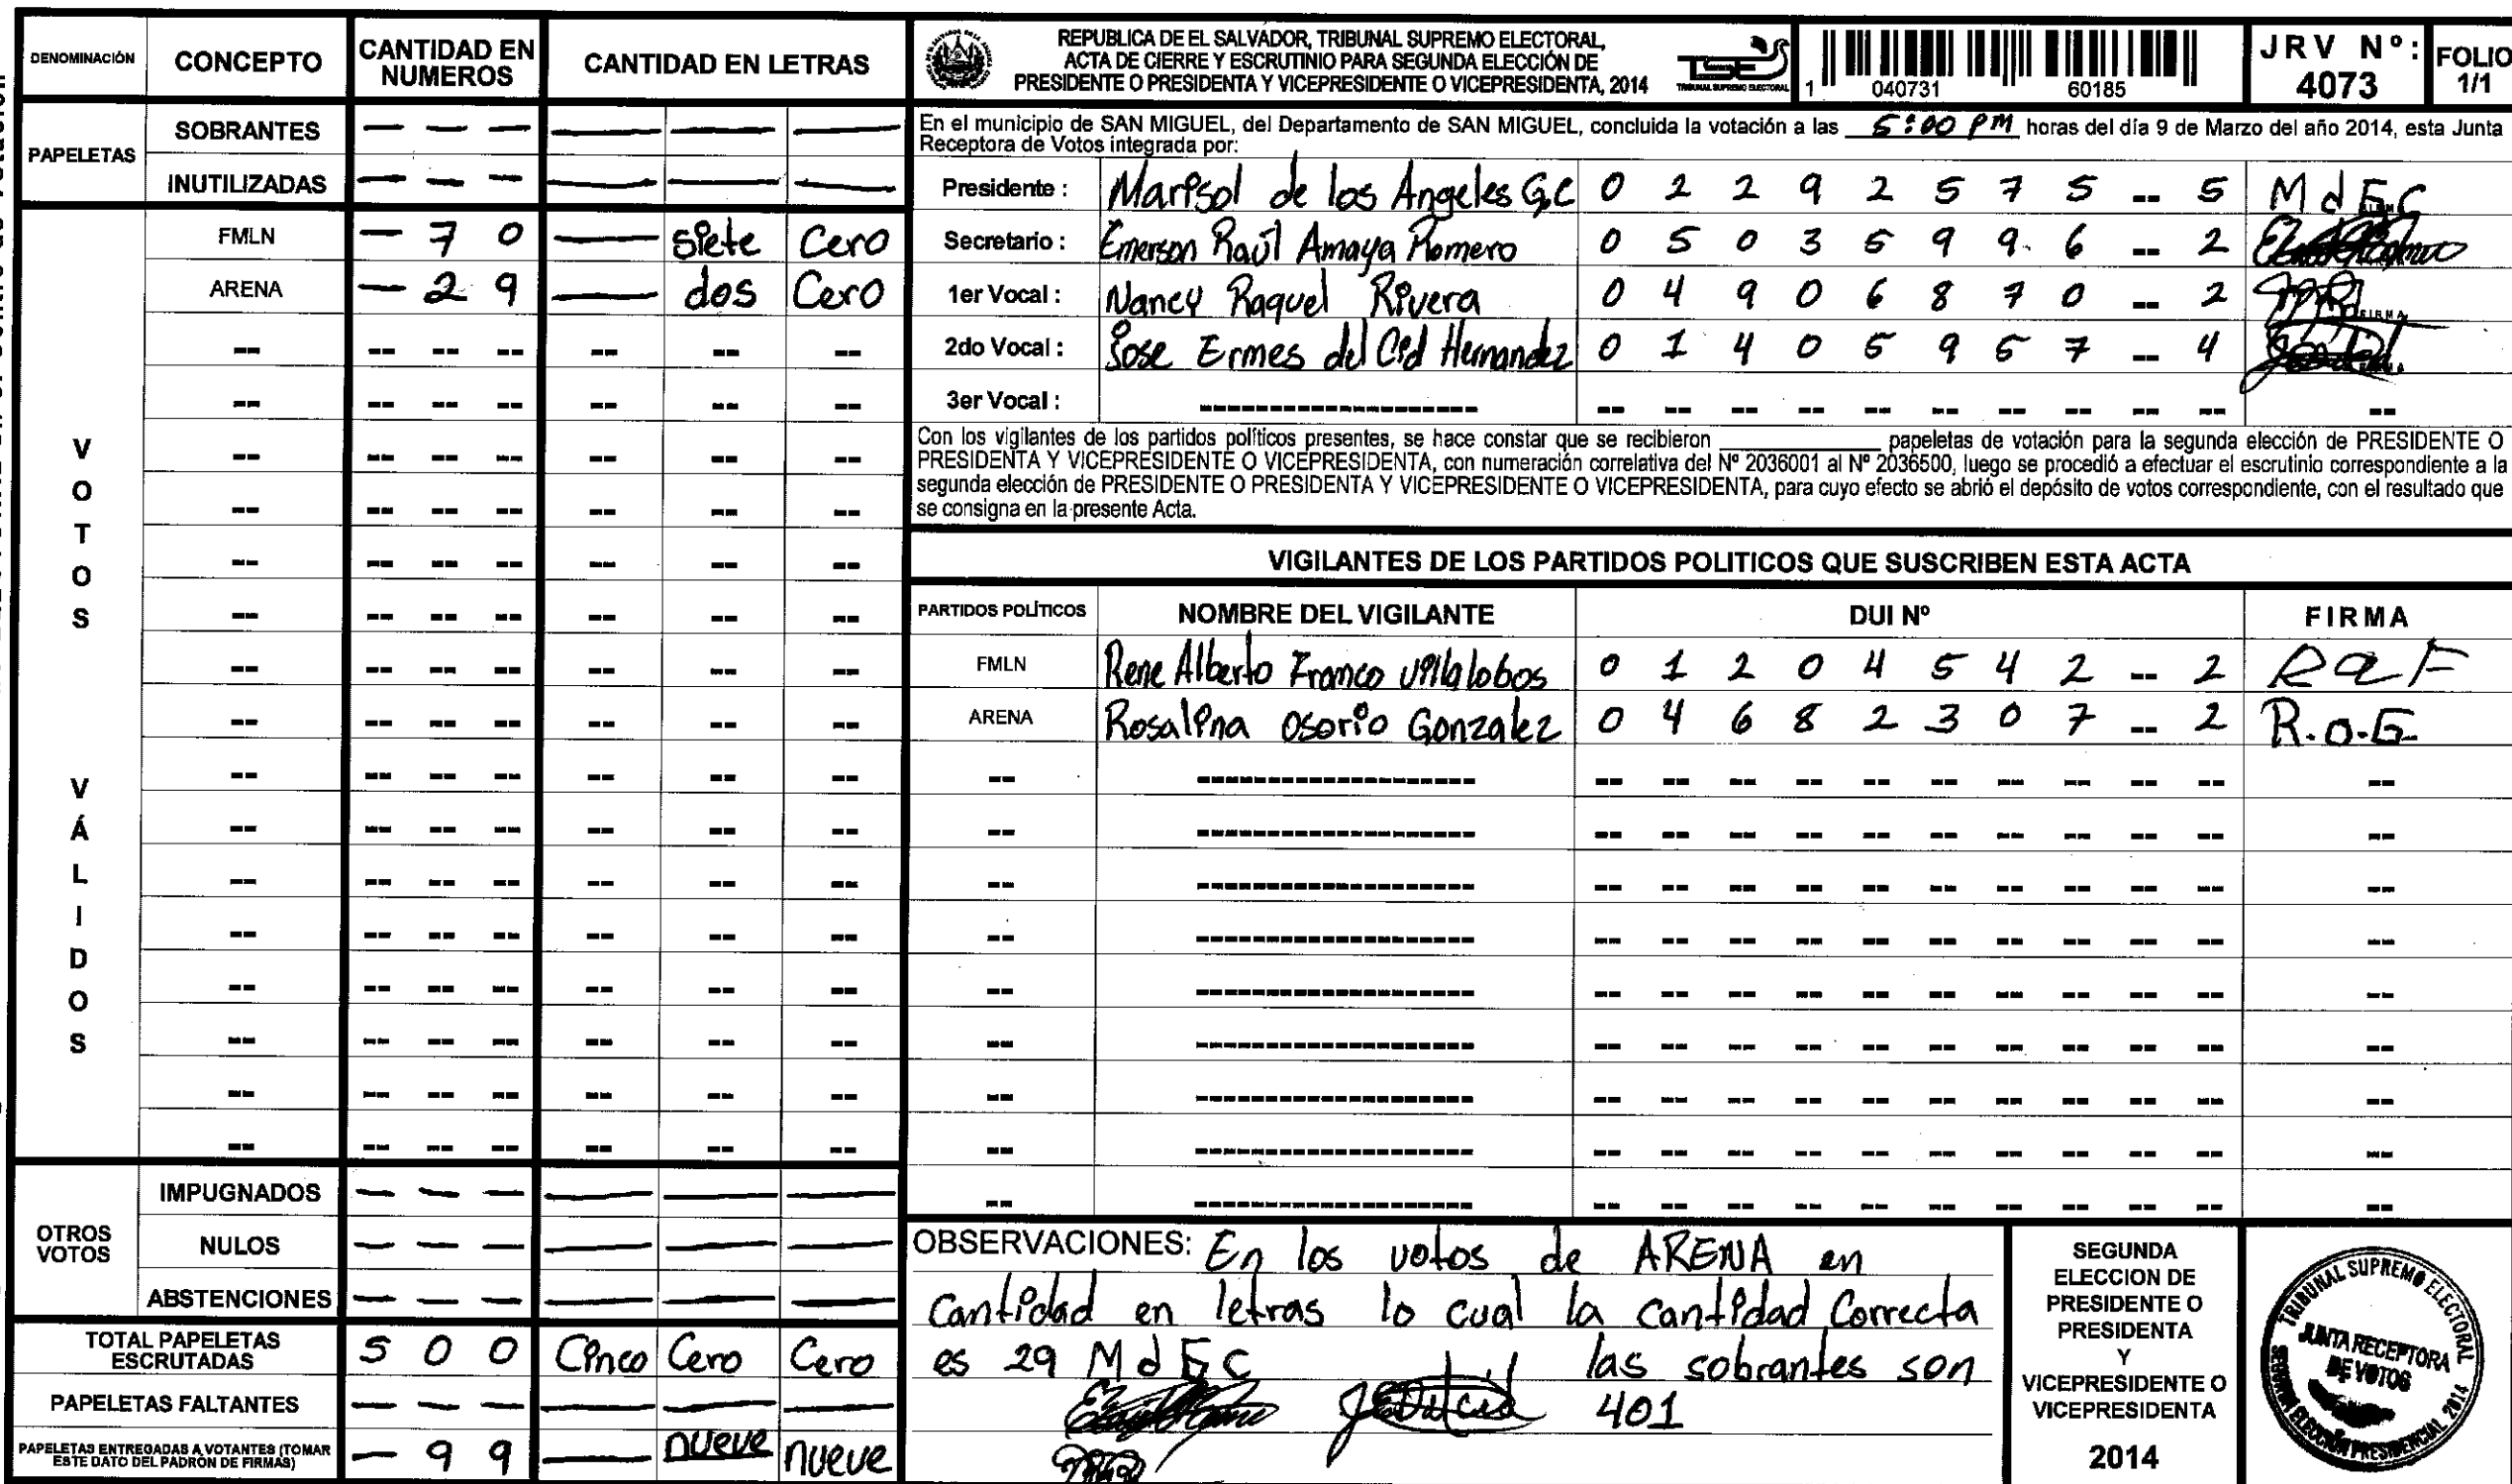 DENOMINACIÓN CONCEPTO CANTIDAD EN NUMEROS CANTIDAD EN LETRAS
PAPELETAS
SOBRANTES — — — — — —
INUTILIZADAS — — — — — —
VOTOS VÁLIDOS
FMLN — 7 0 — siete Cero
ARENA — 2 9 — dos Cero
OTROS VOTOS
IMPUGNADOS — — — — — —
NULOS — — — — — —
ABSTENCIONES — — — — — —
TOTAL PAPELETAS ESCRUTADAS 5 0 0 Cinco Cero Cero
PAPELETAS FALTANTES — — — — — —
PAPELETAS ENTREGADAS A VOTANTES (TOMAR ESTE DATO DEL PADRON DE FIRMAS) — 9 9 — nueve nueve
REPUBLICA DE EL SALVADOR, TRIBUNAL SUPREMO ELECTORAL,
ACTA DE CIERRE Y ESCRUTINIO PARA SEGUNDA ELECCIÓN DE
PRESIDENTE O PRESIDENTA Y VICEPRESIDENTE O VICEPRESIDENTA, 2014
TSE
TRIBUNAL SUPREMO ELECTORAL
1 040731 60185
JRV Nº: 4073
FOLIO 1/1
En el municipio de SAN MIGUEL, del Departamento de SAN MIGUEL, concluida la votación a las 5:00 PM horas del día 9 de Marzo del año 2014, esta Junta
Receptora de Votos integrada por:
Presidente : Marisol de los Angeles G,C 0 2 2 9 2 5 7 5 -- 5 M d G C
Secretario : Emerson Raúl Amaya Romero 0 5 0 3 5 9 9 6 -- 2
1er Vocal : Nancy Raquel Rivera 0 4 9 0 6 8 7 0 -- 2
2do Vocal : Jose Ermes del Cid Hernandez 0 1 4 0 5 9 5 7 -- 4
3er Vocal :
Con los vigilantes de los partidos políticos presentes, se hace constar que se recibieron ________ papeletas de votación para la segunda elección de PRESIDENTE O
PRESIDENTA Y VICEPRESIDENTE O VICEPRESIDENTA, con numeración correlativa del Nº 2036001 al Nº 2036500, luego se procedió a efectuar el escrutinio correspondiente a la
segunda elección de PRESIDENTE O PRESIDENTA Y VICEPRESIDENTE O VICEPRESIDENTA, para cuyo efecto se abrió el depósito de votos correspondiente, con el resultado que
se consigna en la presente Acta.
VIGILANTES DE LOS PARTIDOS POLITICOS QUE SUSCRIBEN ESTA ACTA
PARTIDOS POLÍTICOS NOMBRE DEL VIGILANTE DUI Nº FIRMA
FMLN Rene Alberto Franco Villalobos 0 1 2 0 4 5 4 2 -- 2 RaF
ARENA Rosalina Osorio Gonzalez 0 4 6 8 2 3 0 7 -- 2 R.O.G
OBSERVACIONES: En los votos de ARENA en
Cantidad en letras lo cual la cantidad Correcta
es 29 M d G C las sobrantes son
401
SEGUNDA
ELECCION DE
PRESIDENTE O
PRESIDENTA
Y
VICEPRESIDENTE O
VICEPRESIDENTA
2014
TRIBUNAL SUPREMO ELECTORAL
JUNTA RECEPTORA
DE VOTOS
SEGUNDA ELECCIÓN PRESIDENCIAL 2014